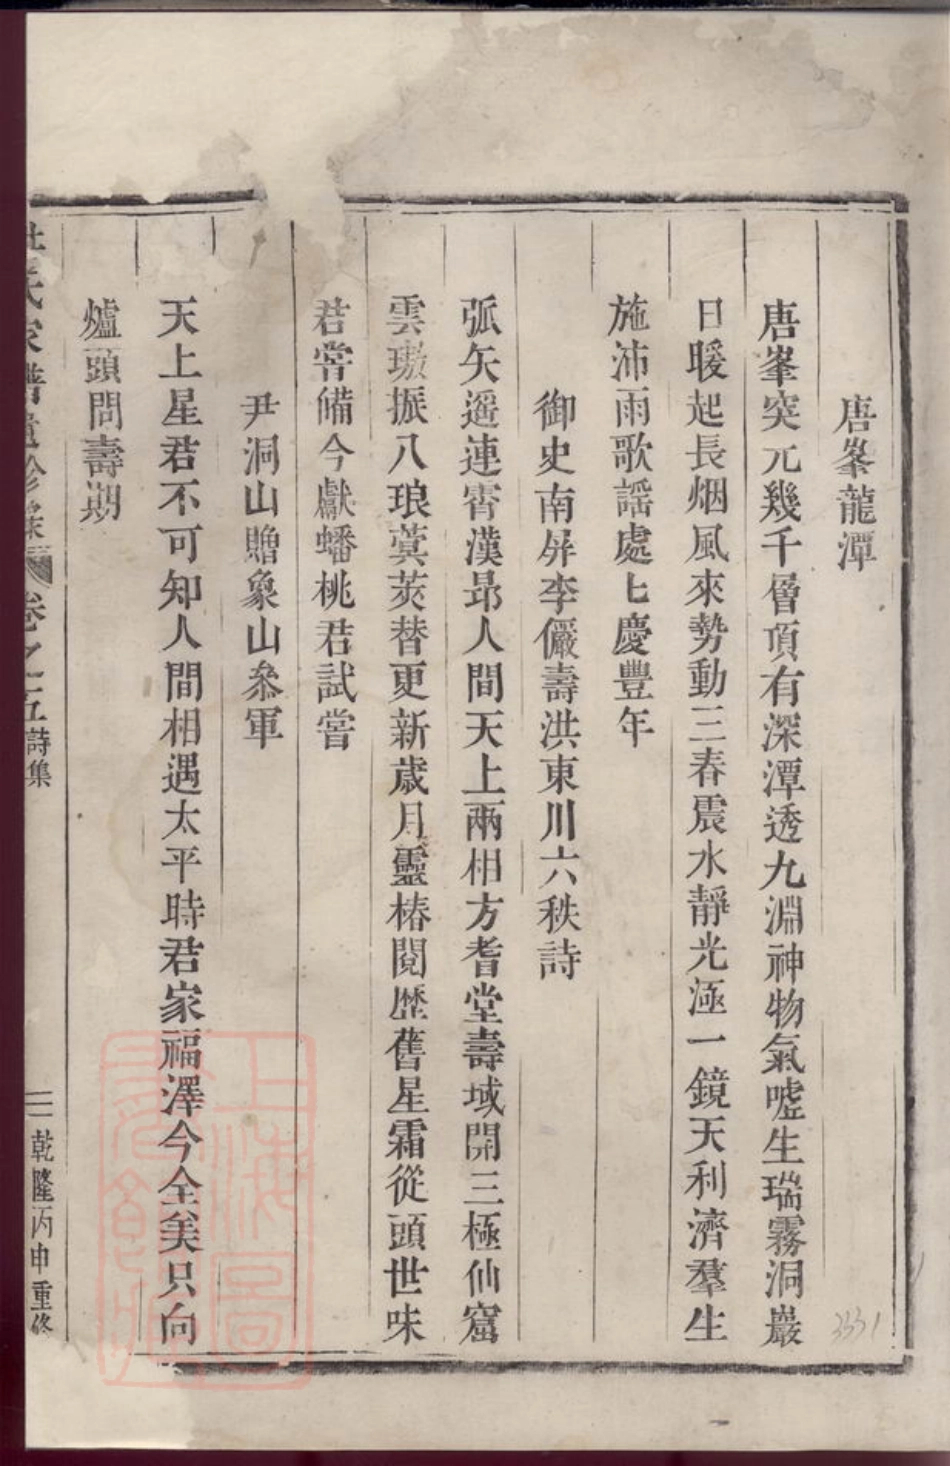 唐峯龍潭
唐峯突兀幾千層頂有深潭透九淵神物氣噓生瑞霧洞巖
日暖起長烟風來勢動三春震水靜光涵一鏡天利濟羣生
施沛雨歌謡處匕慶豐年
御史南屏李儼壽洪東川六秩詩
弧矢遥連霄漢昻人間天上兩相方耆堂壽域開三極仙窟
雲璈振八琅蓂荚替更新歳月靈椿閱歴舊星霜從頭世味
君嘗備今獻蟠桃君試嘗
尹洞山贈象山叅軍
天上星君不可知人間相遇太平時君家福澤今全美只向
爐頭問壽期
氏家譜 卷之五 詩集
二 乾隆丙申重修
3331
上海圖